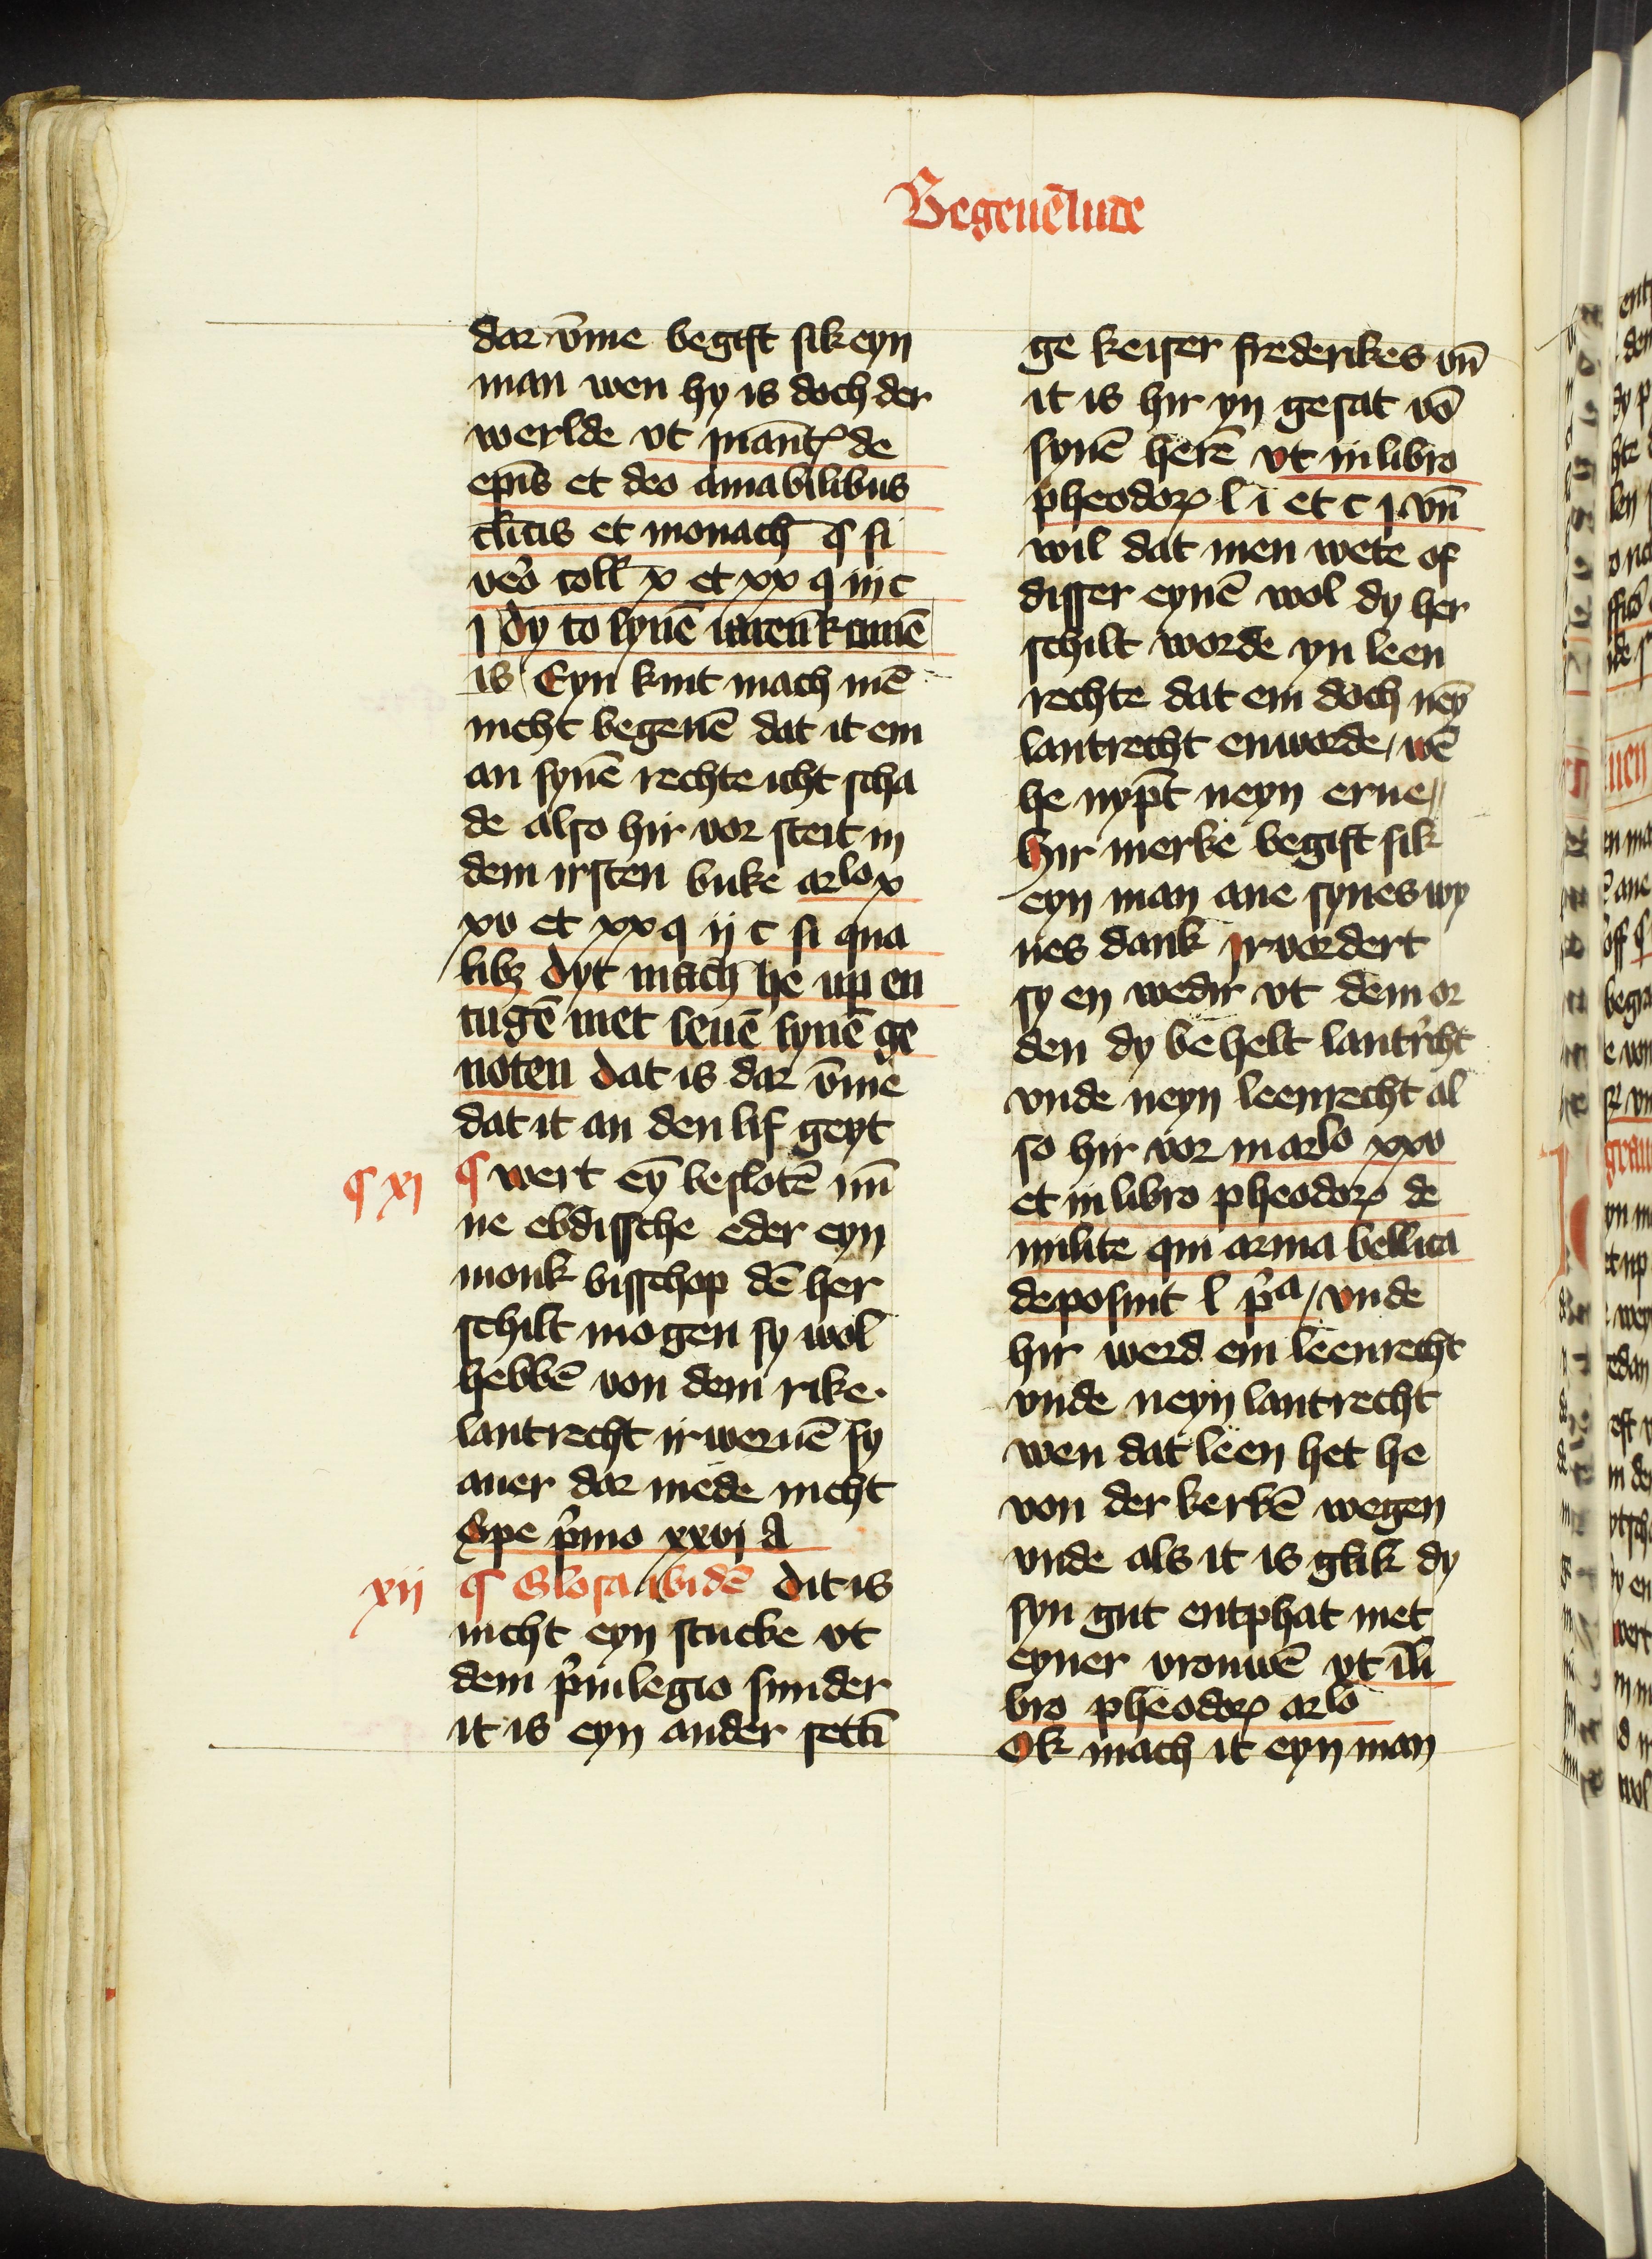 Begeuēlude
dar v̄me begift sik eyn
man wen hy is doch der
werlde vt in aut̄ꝝ de
ep̄is et deo amabilibus
cl̄icis et monach ¶ si
veo᷒ coll̄ x et xx q iij c
j dy to synē iaren komē
is Eyn kint mach mē
nicht begeuē dat it em
an synē rechte icht scha
de also hir vor steit in
dem irsten buke arlo x
xv et xx q ij c si qua
libꝫ dyt mach he up en
tugē met seuē synē ge
noten dat is dar v̄me
dat it an den lif geyt
¶ xj
¶ wert eȳ beslotē nu̅
ne ebdissche eder eyn
monk bisschop dē her
schilt mogen sy wol
hebbē von dem rike.
lantrecht irweruē sy
auer dar mede nicht
Spe p̄mo xxvj A
xij
¶ Glosa ibidē dit is
nicht eyn stucke vt
dem p̄uilegio sunder
it is eyn ander setti̅
ge keiser frederikes vn̄
it is hir yn gesat vō
synē herē vt in libro
pheodorꝝ l i et c j. vn̄
wil dat men wete of
disser eynē wol dy her
schilt worde yn leen
rechte dat em doch neȳ
lantrecht enworde / wē
he nypt̄ neyn erue //
Hir merke begift sik
eyn man ane synes wy
ues dank Irvordert
sy en wedir vt dem or
den dy behelt lantr̄cht
vnde neyn leenrecht al
so hir vor in arlo xxv
et in libro pheodorꝝ de
milite qui arma bellica
deposuit l p̄a / vnde
hir werd em leenrecht
vnde neyn lantrecht
wen dat leen het he
von der kerkē wegen
vnde als it is glik dy
syn gut entphat met
eyner vrouwē vt i̅ li
bro pheodorꝝ arlo
Ok mach it eyn man